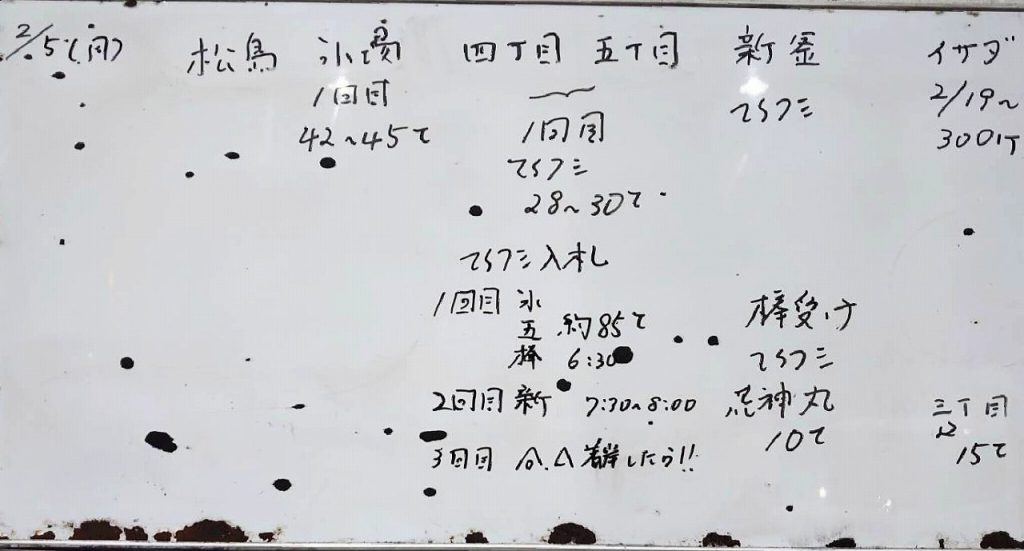 2/5(月)
松島 氷濱 四丁目 五丁目 新釜 イサダ
1回目
42~45t
1回目
ひラフミ
28~30t
ひラフミ
2/19~
300け
ひラフミ入札
1回目 氷
五 約85t
棒 6:30
2回目 新 7:30~8:00
3回目 着岸したら!!
棒受け
ひラフミ
神丸
10t
三丁目
15t